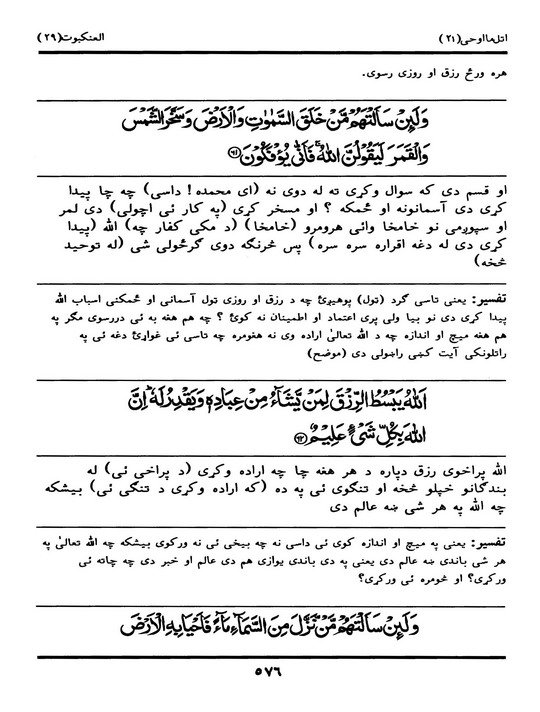 اتل ما اوحی(۲۱)
العنکبوت(۲۹)
هره ورځ رزق او روزی رسوی.
وَلَئِنْ سَاَلْتَهُمْ مَّنْ خَلَقَ السَّمٰوٰتِ وَالْاَرْضَ وَسَخَّرَ الشَّمْسَ
وَالْقَمَرَ لَیَقُوْلُنَّ اللهُ ۚ فَاَنّٰی یُؤْفَکُوْنَ ﴿۶۱﴾
او قسم دی که سوال وکړی ته له دوی نه (ای محمده! داسی) چه چا پیدا
کړی دی آسمانونه او ځمکه ؟ او مسخر کړی (په کار ئی اچولی) دی لمر
او سپوږمی نو خامخا وائی هرومرو (خامخا) (د مکی کفار چه) الله (پیدا
کړی دی له دغه اقراره سره سره) پس څرنګه دوی ګرځولی شی (له توحید
څخه)
تفسیر: یعنی تاسی ګرد (تول) پوهیږئ چه د رزق او روزی تول آسمانی او ځمکنی اسباب الله
پیدا کړی دی نو بیا ولی پری اعتماد او اطمینان نه کوئ ؟ چه هم هغه به ئی دررسوی مګر په
هم هغه میچ او اندازه چه د الله تعالیٰ اراده وی نه هغومره چه تاسی ئی غواړئ دغه ئی په
راتلونکی آیت کښی راښولی دی (موضح)
اَللهُ یَبْسُطُ الرِّزْقَ لِمَنْ یَّشَآءُ مِنْ عِبَادِهٖ وَیَقْدِرُ لَهٗ ؕ اِنَّ
اللهَ بِکُلِّ شَیْءٍ عَلِیْمٌ ﴿۶۲﴾
الله پراخوی رزق دپاره د هر هغه چا چه اراده وکړی (د پراخی ئی) له
بندګانو خپلو څخه او تنګوی ئی په ده (که اراده وکړی د تنګی ئی) بیشکه
چه الله په هر شی ښه عالم دی
تفسیر: یعنی په میچ او اندازه کوی ئی داسی نه چه بیخی ئی نه ورکوی بیشکه چه الله تعالیٰ په
هر شی باندی ښه عالم دی یعنی په دی باندی یوازی هم دی عالم او خبر دی چه چاته ئی
ورکړی؟ او څومره ئی ورکړی؟
وَلَئِنْ سَاَلْتَهُمْ مَّنْ نَّزَّلَ مِنَ السَّمَآءِ مَآءً فَاَحْیَا بِهِ الْاَرْضَ
۵۷۶